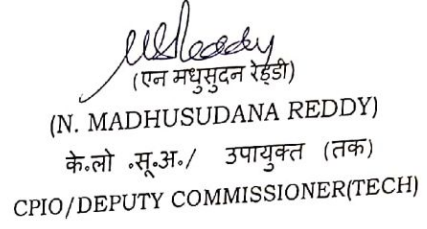 (एन मधुसुदन रेड्डी)
(N. MADHUSUDANA REDDY)
के.लो .सू.अ./ उपायुक्त (तक)
CPIO/DEPUTY COMMISSIONER(TECH)